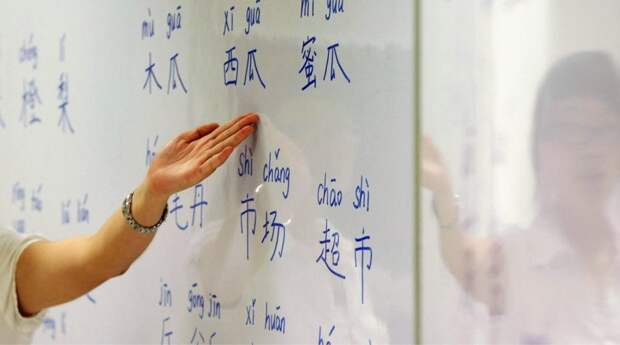 mù guā xī guā mì guā
chéng lí
橙 梨 木瓜 西瓜 蜜瓜
shì chǎng chāo shì
毛丹 市场 超市
jīn gōng jīn xǐ huān